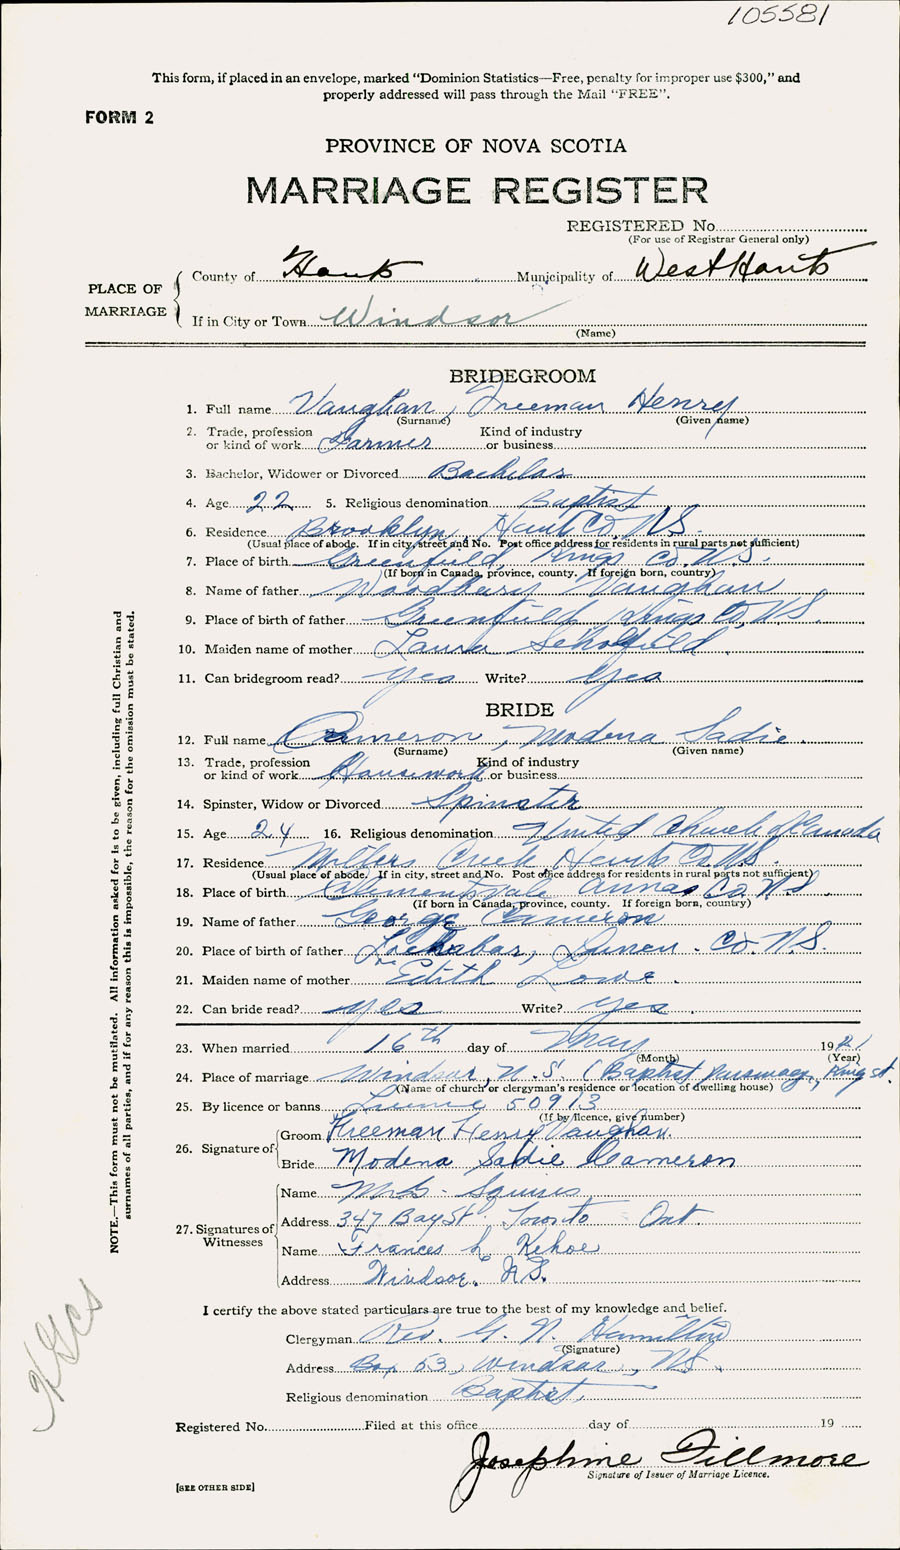 105581
This form, if placed in an envelope, marked "Dominion Statistics—Free, penalty for improper use $300," and
properly addressed will pass through the Mail "FREE".
FORM 2
PROVINCE OF NOVA SCOTIA
MARRIAGE REGISTER
REGISTERED No.
(For use of Registrar General only)
PLACE OF MARRIAGE
County of Hants Municipality of West Hants
If in City or Town Windsor
(Name)
BRIDEGROOM
1. Full name Vaughan, Freeman Henry
(Surname) (Given name)
2. Trade, profession Kind of industry
or kind of work Farmer or business
3. Bachelor, Widower or Divorced Bachelor
4. Age 22 5. Religious denomination Baptist
6. Residence Brooklyn, Hants Co, N.S.
(Usual place of abode. If in city, street and No. Post office address for residents in rural parts not sufficient)
7. Place of birth Greenfield, Kings Co. N.S.
(If born in Canada, province, county. If foreign born, country)
8. Name of father Woodbury Vaughan
9. Place of birth of father Greenfield Kings Co, N.S.
10. Maiden name of mother Laura Scholfield
11. Can bridegroom read? Yes Write? Yes
BRIDE
12. Full name Cameron, Modena Sadie.
(Surname) (Given name)
13. Trade, profession Kind of industry
or kind of work Housework or business
14. Spinster, Widow or Divorced Spinster
15. Age 24 16. Religious denomination United Church of Canada
17. Residence Millers Creek Hants Co. N.S.
(Usual place of abode. If in city, street and No. Post office address for residents in rural parts not sufficient)
18. Place of birth Clementsvale Annas Co. N.S.
(If born in Canada, province, county. If foreign born, country)
19. Name of father George Cameron
20. Place of birth of father Lochabar, Lunen. Co. N.S.
21. Maiden name of mother Edith Lowe.
22. Can bride read? Yes Write? Yes.
23. When married 16th day of May 19
(Month) (Year)
24. Place of marriage Windsor, N.S. (Baptist Parsonage, King st.
(Name of church or clergyman's residence or location of dwelling house)
25. By licence or banns 50913
(If by licence, give number)
26. Signature of
Groom Freeman Henry Vaughan.
Bride Modena Sadie Cameron
27. Signatures of Witnesses
Name Squires
Address 347 Bay St. Toronto Ont.
Name Frances L. Kehoe
Address Windsor. N.S.
I certify the above stated particulars are true to the best of my knowledge and belief.
Clergyman Rev. G. N. Hamilton
(Signature)
Address Box 53, Windsor, N.S.
Religious denomination Baptist.
Registered No. Filed at this office day of 19
Josephine Fillmore
Signature of Issuer of Marriage Licence.
[SEE OTHER SIDE]
NOTE.—This form must not be mutilated. All information asked for is to be given, including full Christian and
surnames of all parties, and if for any reason this is impossible, the reason for the omission must be stated.